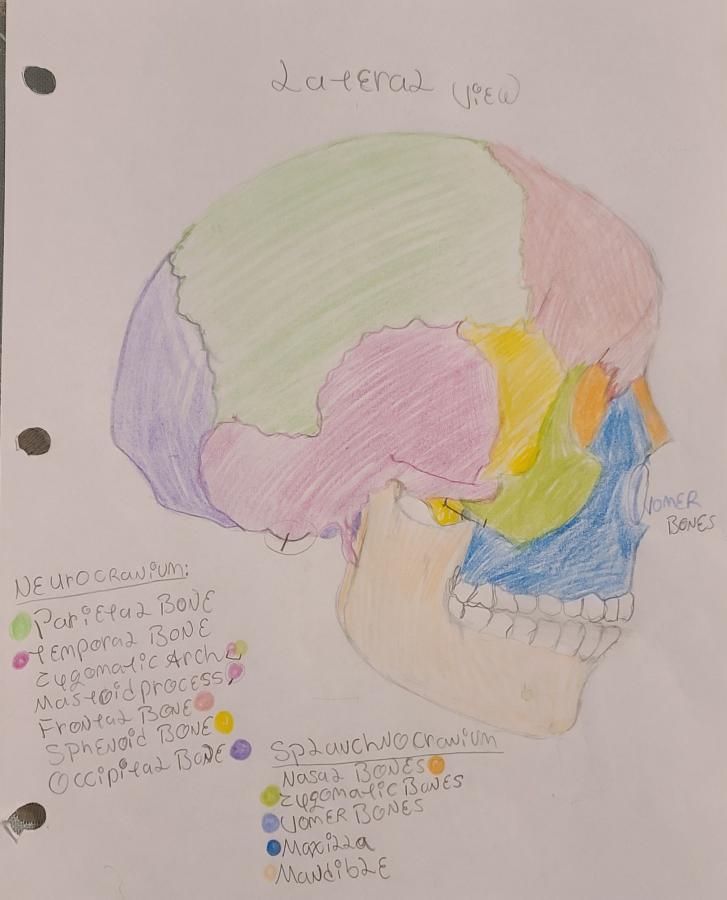 Lateral View
VOMER
BONES
Neurocranium:
Parietal Bone
Temporal Bone
Zygomatic Arch
Mastoid process
Frontal Bone
Sphenoid Bone
Occipital Bone
Splanchnocranium
Nasal Bones
Zygomatic Bones
Vomer Bones
Maxilla
Mandible